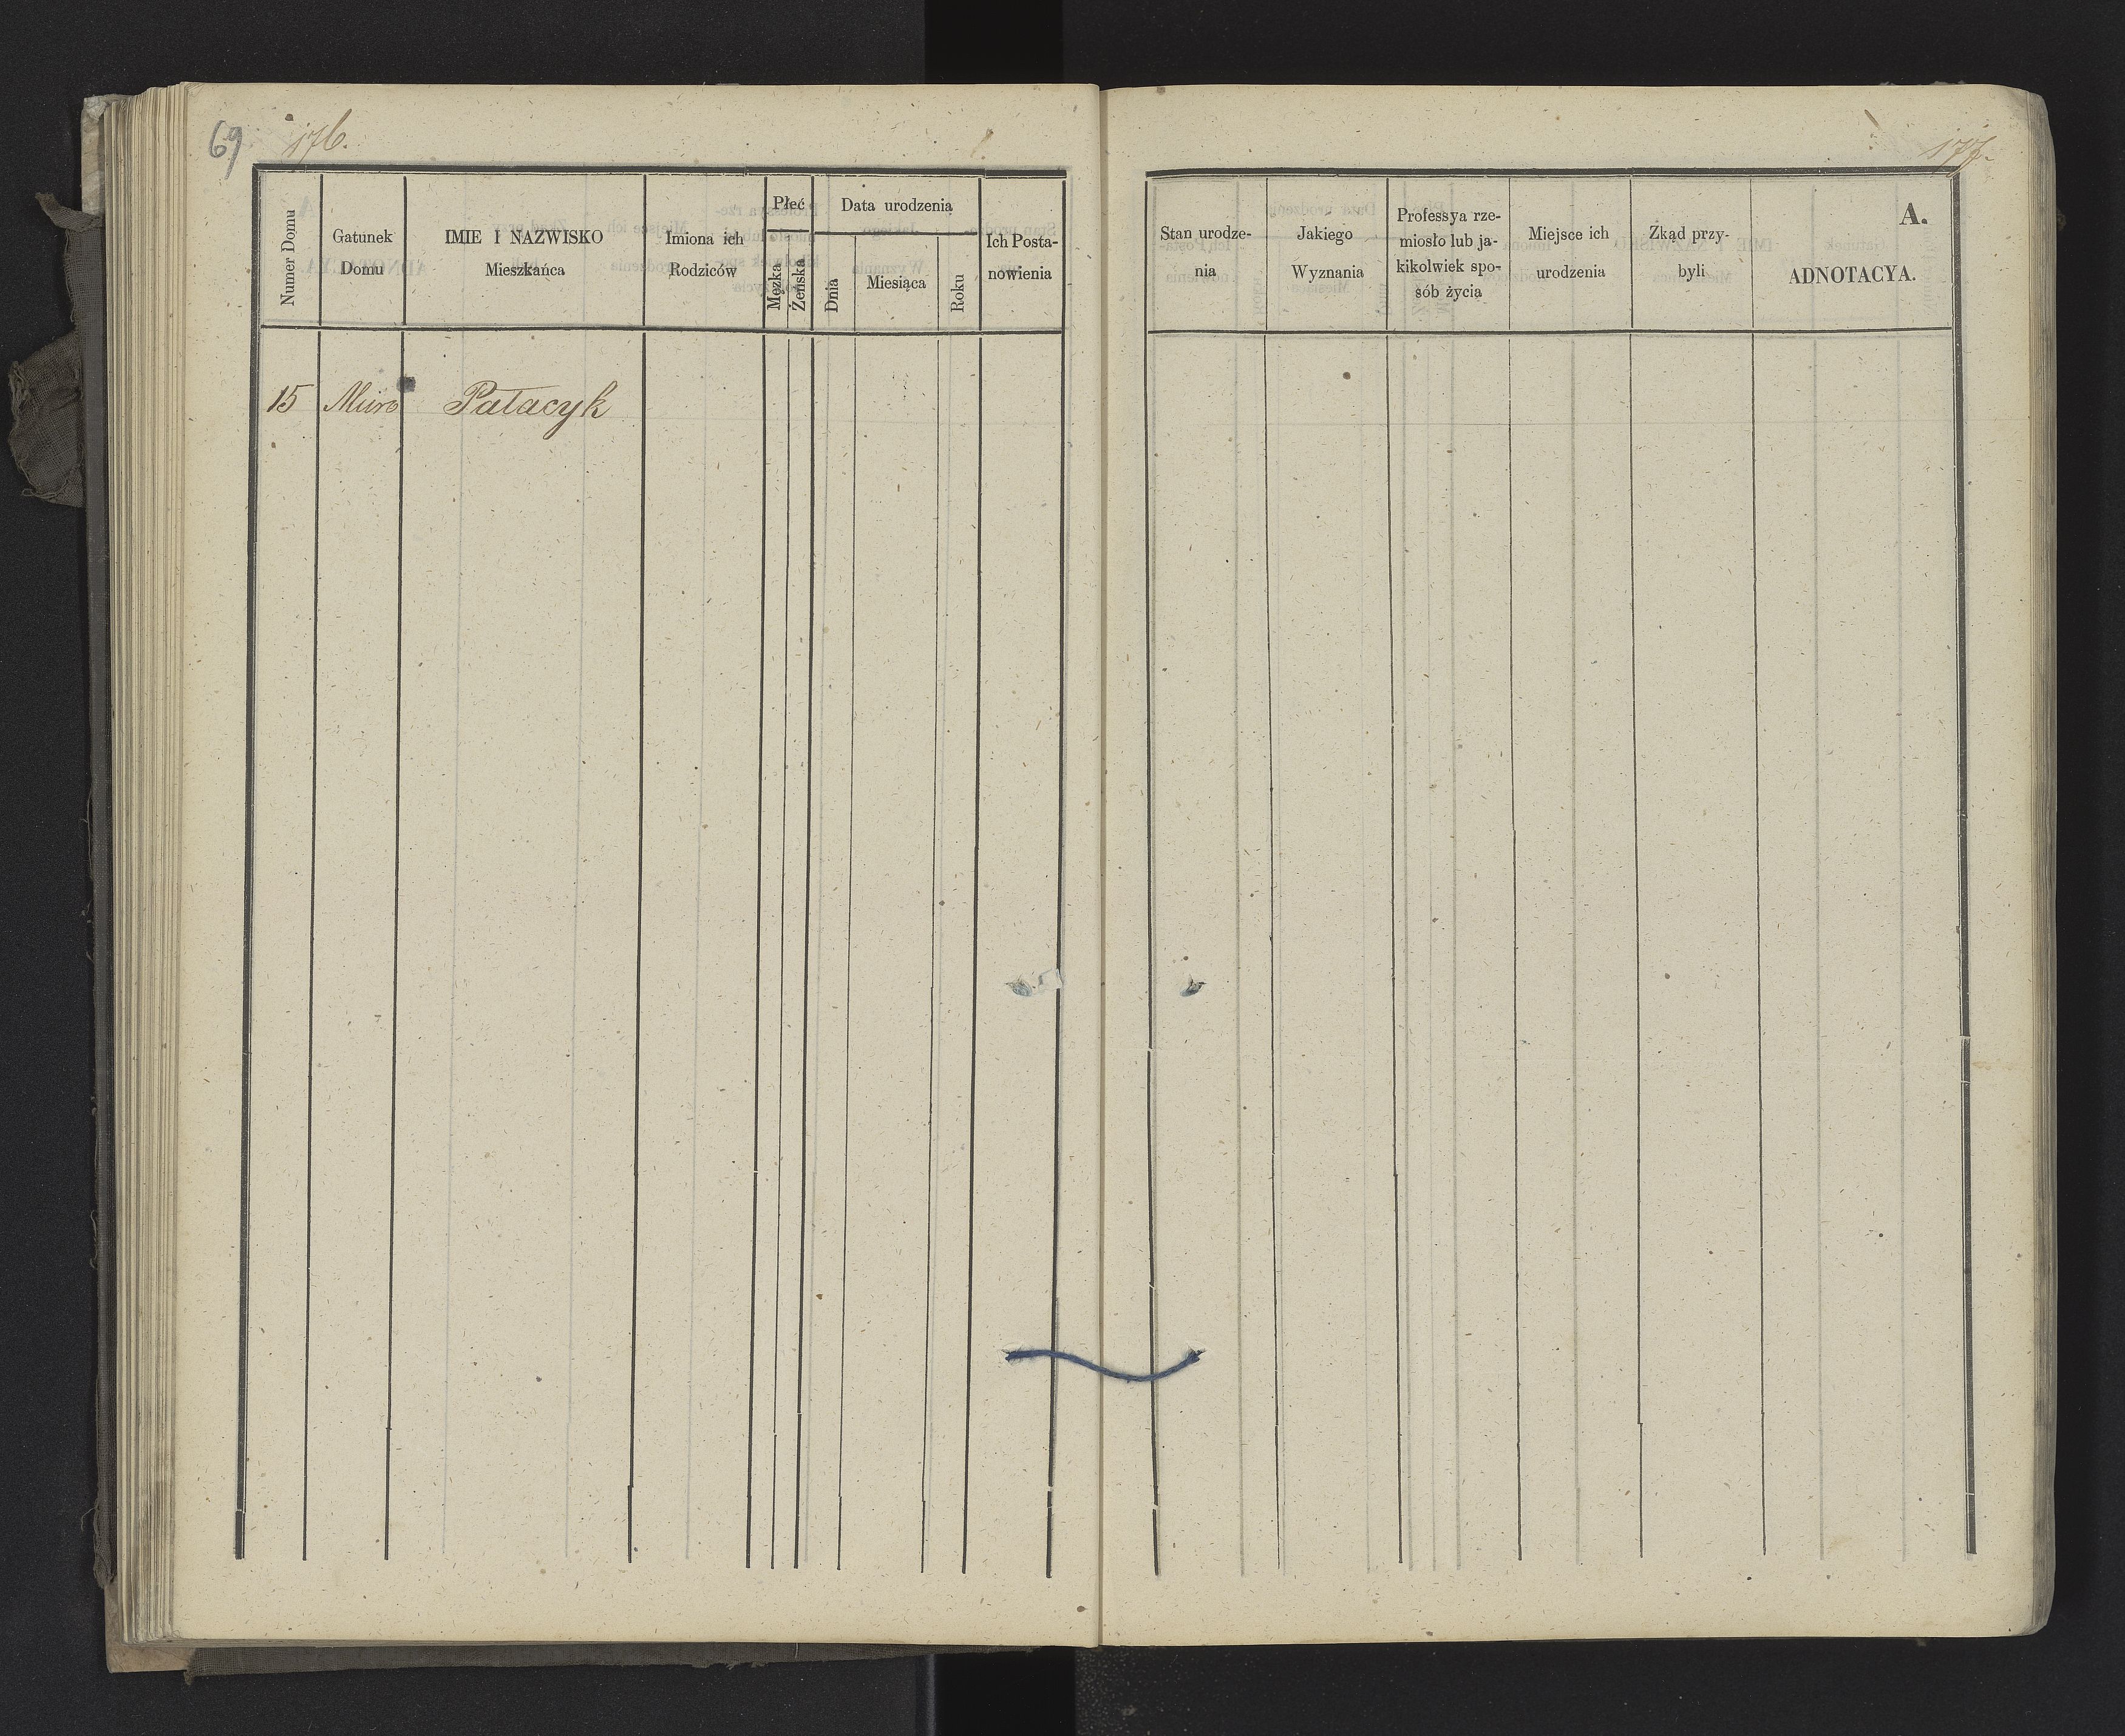 69 176.
Numer Domu
Gatunek
Domu
IMIE I NAZWISKO
Mieszkańca
Imiona ich
Rodziców
Płeć
Męzka
Żeńska
Data urodzenia
Dnia
Miesiąca
Roku
Ich Posta-
nowienia
15 Muro Pałacyk
177.
Stan urodze-
nia
Jakiego
Wyznania
Professya rze-
miosło lub ja-
kikolwiek spo-
sób życia
Miejsce ich
urodzenia
Zkąd przy-
byli
A.
ADNOTACYA.